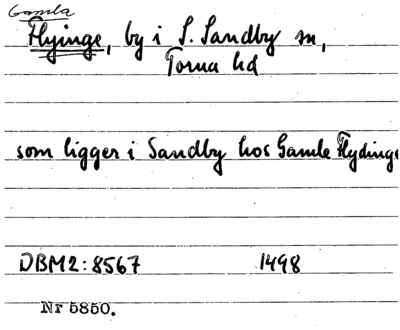 Gamla
Flyinge, by i S. Sandby sn,
Torna hd
som ligger i Sandby hos Gamle Flydinge
DBM2:8567 1498
Nr 5850.